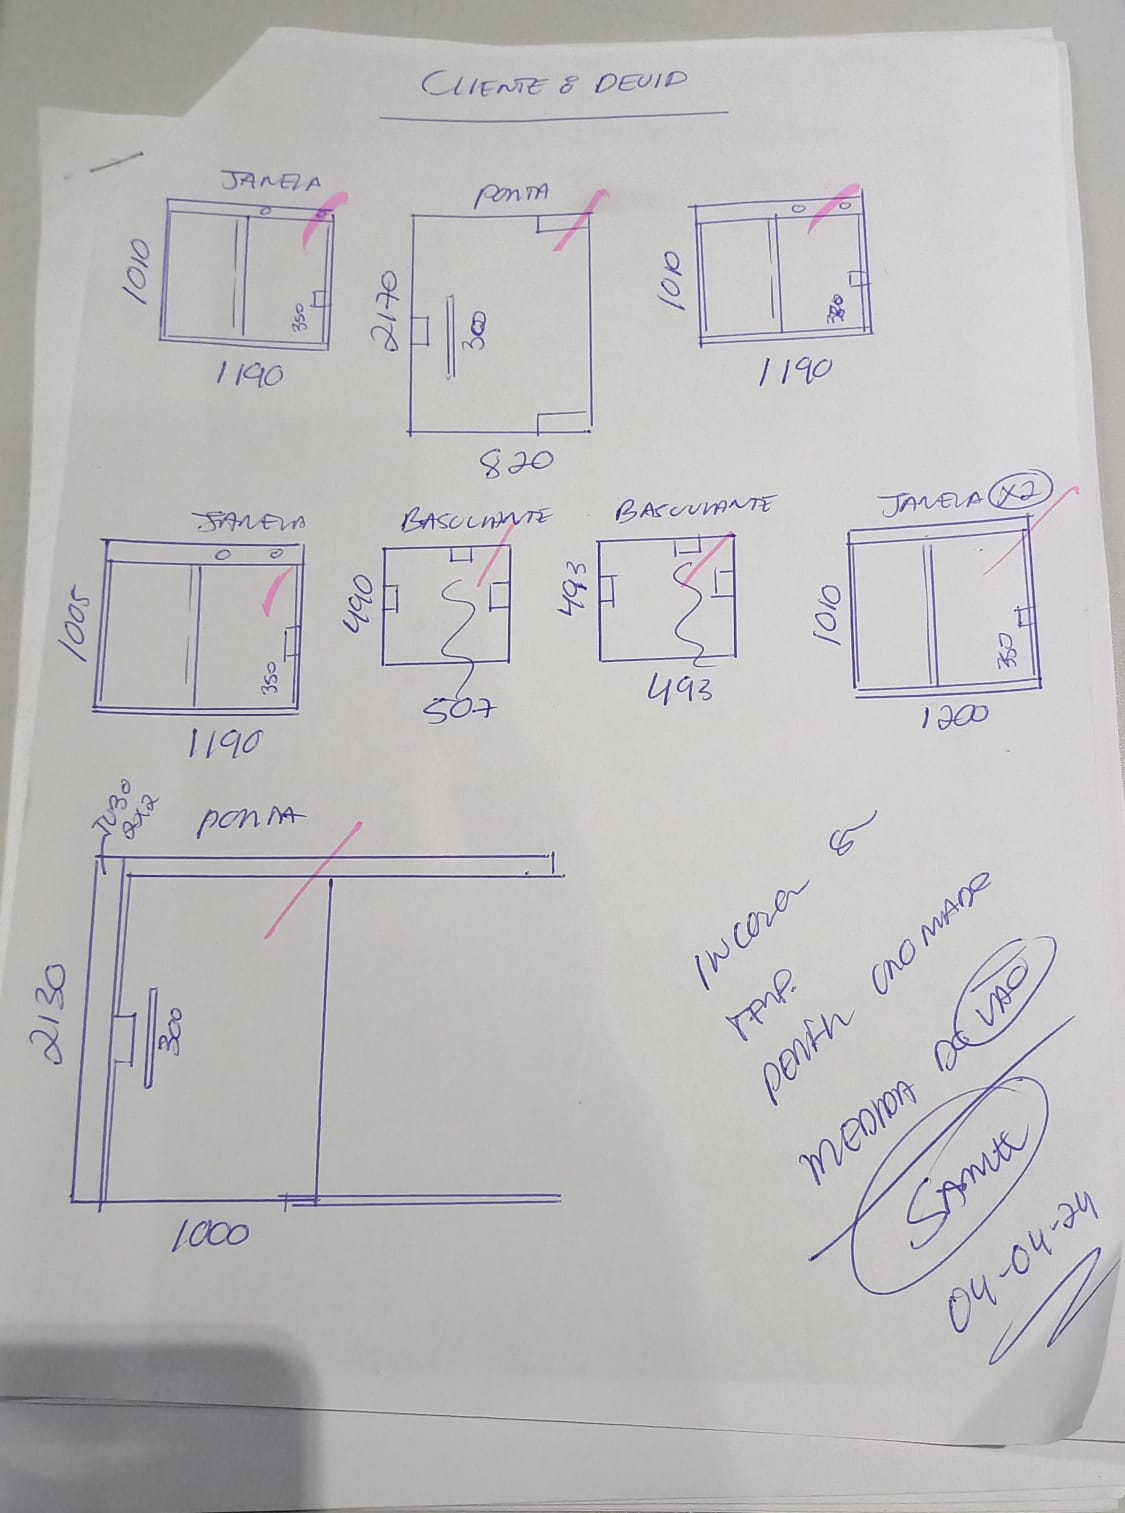 CLIENTE : DEVID
JANELA
1010
350
1190
PORTA
2170
300
820
1010
350
1190
JANELA
1005
350
1190
BASCULANTE
490
507
BASCULANTE
493
493
JANELA X2
1010
350
1200
TUBO
2x2
PORTA
2130
300
1000
INCOLOR 8
TEMP.
PERFIL CROMADO
MEDIDA DE VÃO
04-04-24